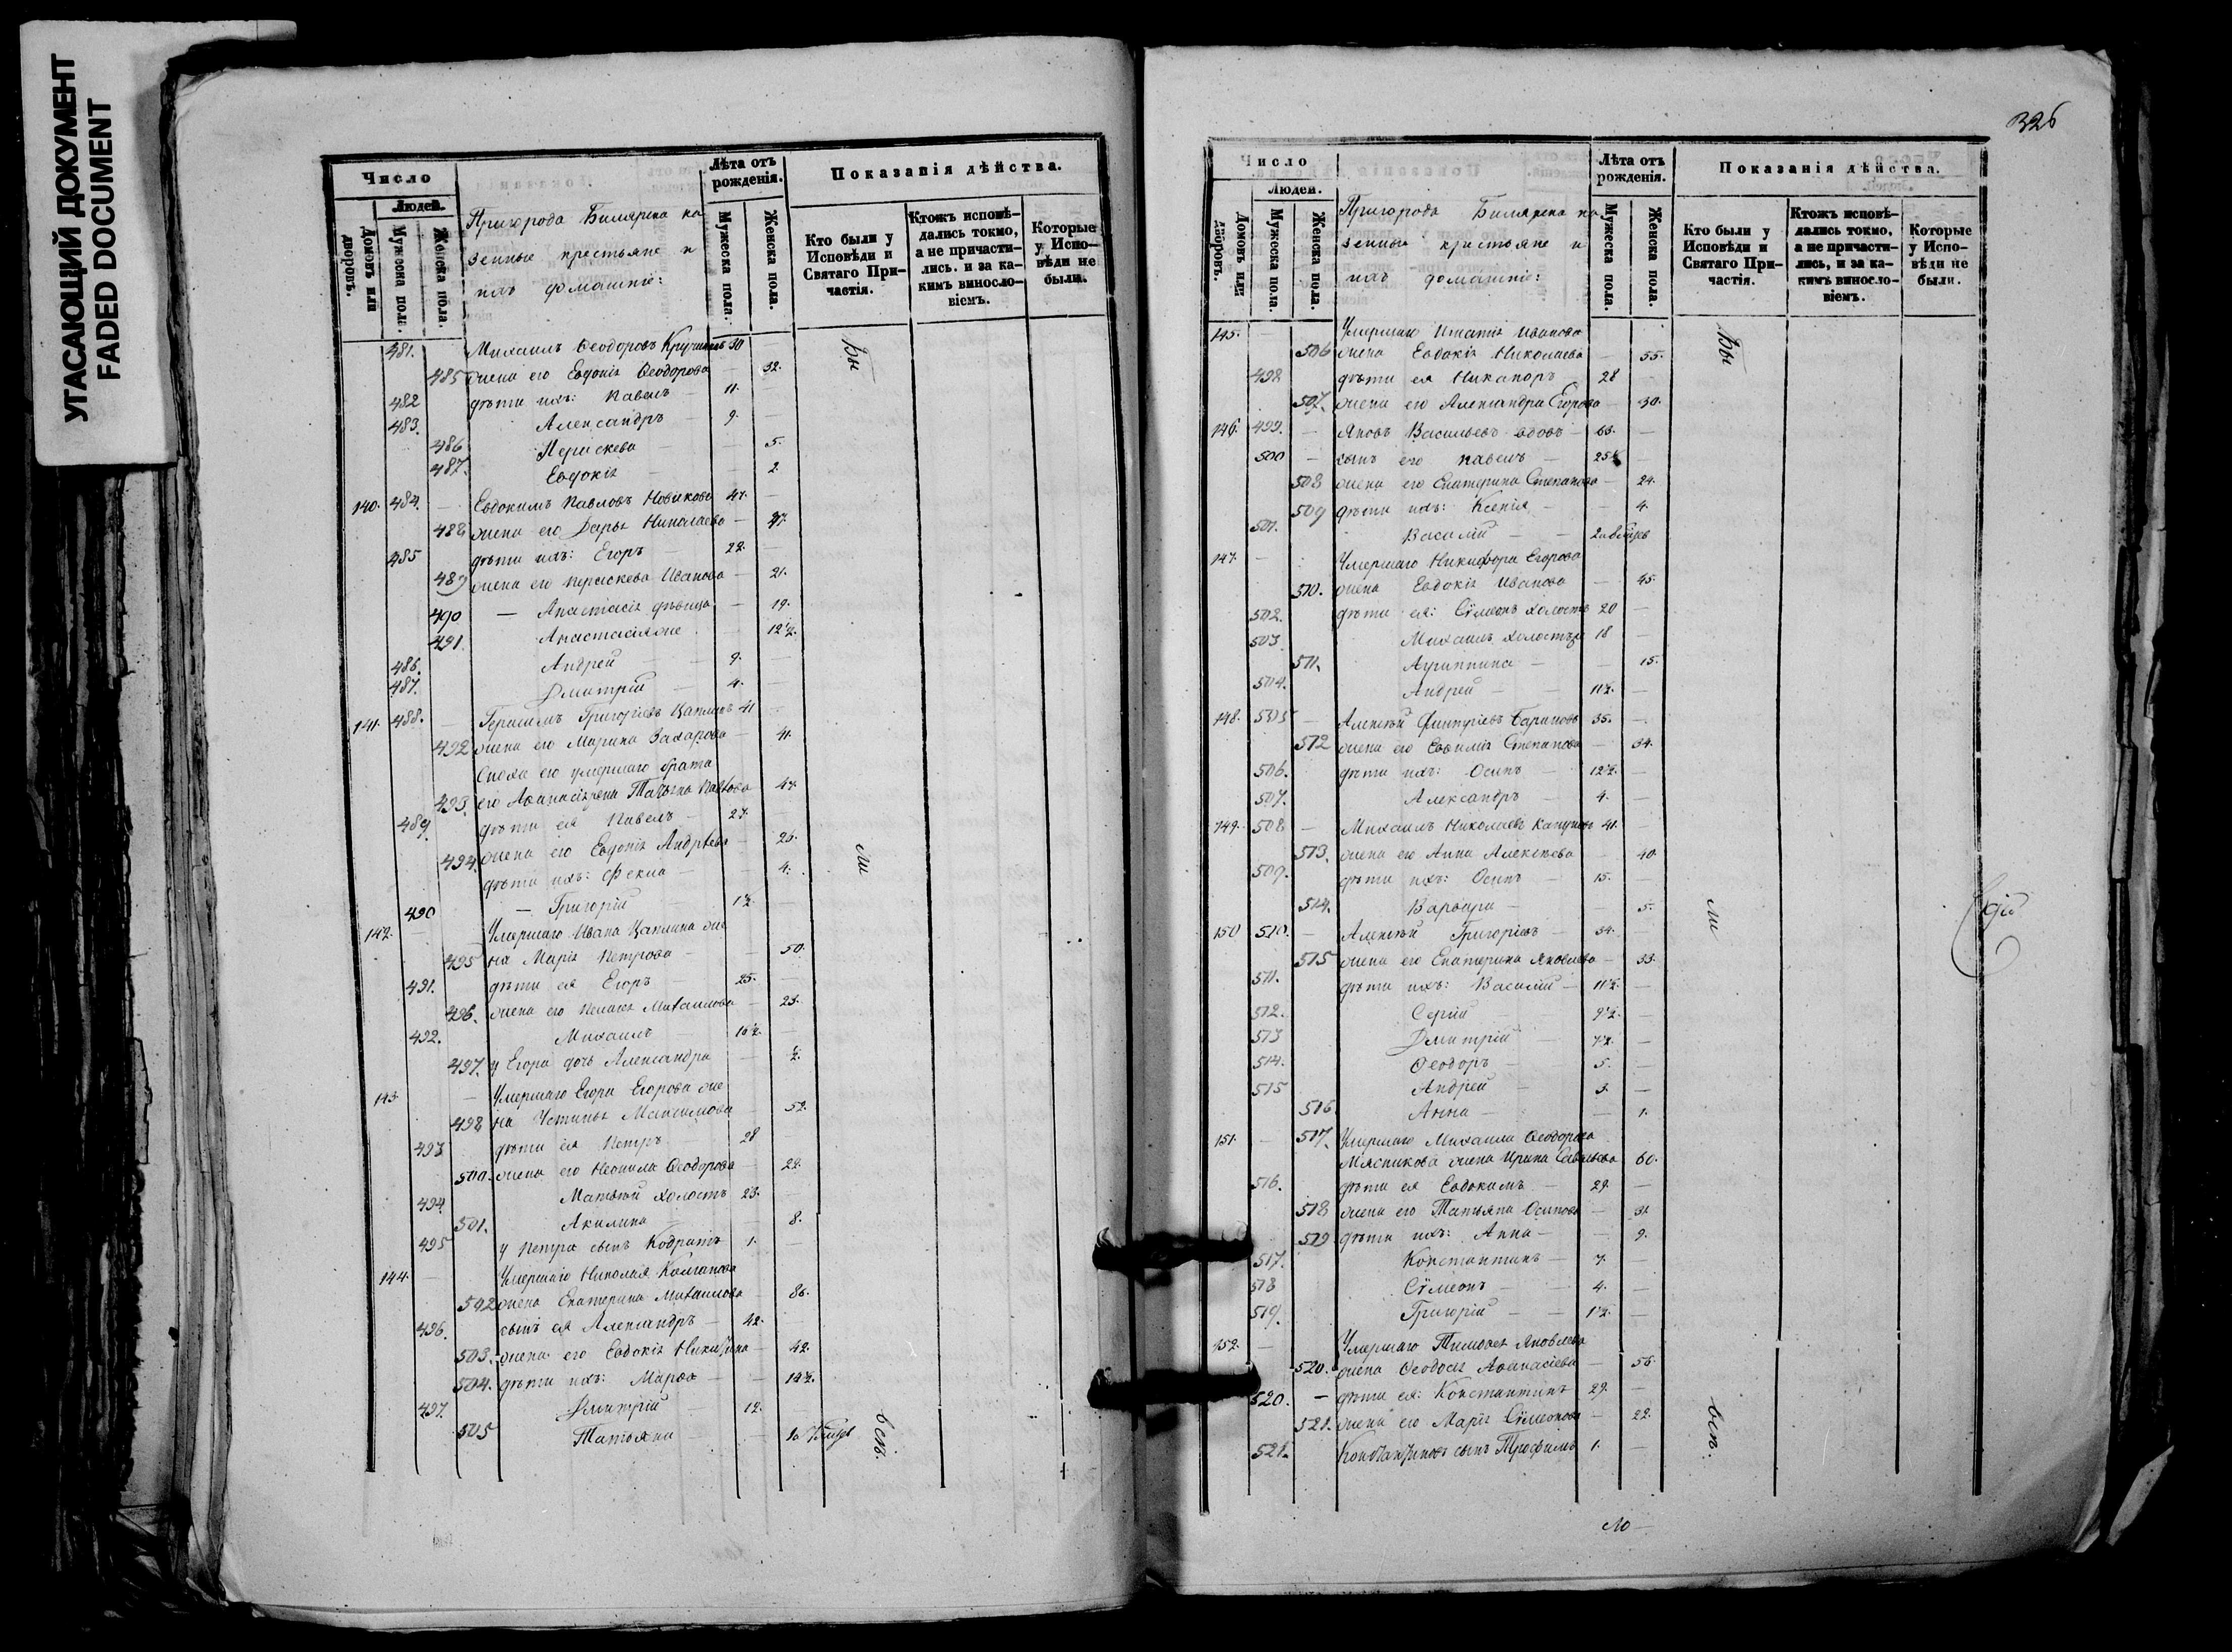 УГАСАЮЩИЙ ДОКУМЕНТ
FADED DOCUMENT
Число
Людей.
Домовъ или дворовъ.
Мужеска пола.
Женска пола.
Пригорода Билярска ка
зенные крестьяне и
ихъ домашніе:
Лѣта отъ рожденія.
Мужеска пола.
Женска пола.
Показанія дѣйства.
Кто были у Исповѣди и Святаго Причастія.
Ктожъ исповѣдались токмо, а не причастились. и за какимъ винословіемъ.
Которые у Исповѣди не были.
481. Михаилъ Ѳеодоровъ 30
485 жена его Евдокія Ѳеодорова — 32.
482 дѣти ихъ: Павелъ — 11.
483. Александръ — 9.
486 Пераскева — 5.
487. Евдокія — 2.
140. 484. — Евдокимъ Павловъ Новиковъ 47.
488 жена его Дарья Николаева — 47.
485 дѣти ихъ: Егоръ — 22.
489 жена его Пераскева Иванова — 21.
490 — Анастасія дѣвица — 19.
491. Анастасія же — 12½.
486. Андрей — 9.
487. Дмитрій — 4.
141. 488. — Герасимъ Григорьевъ Цаплинъ 41
492 жена его Марина Захарова — 41.
Сноха его умершаго брата
493. его Аѳанасія жена Татьяна Павлова 47.
489 дѣти ея Павелъ — 27.
494. жена его Евдокія Андреева — 26.
дѣти ихъ: Фекла — 4.
490 — Григорій 1½.
142. Умершаго Ивана Цаплина же
495 на Марія Петрова — 50.
491. дѣти ея Егоръ — 25.
496. жена его Михаилова — 23.
492. Михаилъ — 16½.
497. у Егора дочь Александра — ½.
143. — Умершаго Егора Егорова же
498 на Устинья Максимова — 52.
493 дѣти ея Петръ 28
500. жена его Неонила Ѳеодорова — 29.
494. Матвѣй холостъ 23.
501. Акилина — 8.
495 у Петра сынъ Кодратъ 1.
144. Умершаго Николая
502 жена Екатерина Михаилова — 86.
496. сынъ ея Александръ — 42.
503. жена его Евдокія Никитина — 42.
504. дѣти ихъ: Марѳа — 14½.
497. Дмитрій — 12.
505 Татьяна —
Бы
ли
вси.
326
Число
Людей.
Домовъ или дворовъ.
Мужеска пола.
Женска пола.
Пригорода Билярска ка
зенные крестьяне и
ихъ домашніе:
Лѣта отъ рожденія.
Мужеска пола.
Женска пола.
Показанія дѣйства.
Кто были у Исповѣди и Святаго Причастія.
Ктожъ исповѣдались токмо, а не причастились, и за какимъ винословіемъ.
Которые у Исповѣди не были.
145. — Умершаго Игнатія Иванова
506 жена Евдокія Николаева — 55.
498 дѣти ея Никаноръ — 28
507. жена его Александра Егорова — 30.
146. 499. — Яковъ Васильевъ вдовъ — 63. —
500 — сынъ его Павелъ — 25
508 жена его Екатерина Степанова — 24.
509 дѣти ихъ: Ксенія — 4.
501. Василій —
147. — Умершаго Никифора Егорова
510. жена Евдокія Иванова — 45.
502. дѣти ея: Сѵмеонъ холостъ 20 —
503. Михаилъ холостъ 18 —
511. Агриппина — 15.
504. Андрей — 11½. —
148. 505 — Алексѣй Дмитріевъ Бариновъ 35. —
512 жена его Евѳимія Степанова — 34.
506. дѣти ихъ: Осипъ — 12½. —
507. Александръ 4. —
149. 508 — Михаилъ Николаевъ 41. —
513. жена его Анна Алексѣева 40.
509. дѣти ихъ: Осипъ — 15. —
514. Варвара — 5.
150 510. — Алексѣй Григорьевъ — 34. —
515 жена его Екатерина Яковлева — 33.
511. дѣти ихъ: Василій — 11½. —
512. Сергій 9½. —
513 Дмитрій 7½. —
514. Ѳеодоръ — 5. —
515 Андрей — 3. —
516 Анна — 1.
151. — 517. Умершаго Михаила Ѳеодорова
Мясникова жена Ирина Савельева 60.
516. дѣти ея Евдокимъ — 29. —
518 жена его Татьяна Осипова — 31
519 дѣти ихъ: Анна — 9.
517. Константинъ — 7. —
518 Сѵмеонъ — 4. —
519. Григорій — 1½. —
152. — Умершаго Тимоѳея Яковлева
520. жена Ѳеодосія Аѳанасіева — 56.
520. — дѣти ея: Константинъ 29. —
521. жена его Марія Сѵмеонова — 22.
521. Константиновъ сынъ Трофимъ 1. —
Бы
ли
вси.